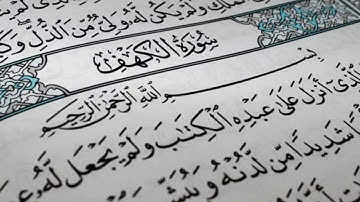 وَلَمْ يَكُن لَّهُۥ وَلِىٌّ مِّنَ ٱلذُّلِّ وَكَ
سُورَةُ ٱلْكَهْفِ
بِسْمِ ٱللَّهِ ٱلرَّحْمَٰنِ ٱلرَّحِيمِ
أَنزَلَ عَلَىٰ عَبْدِهِ ٱلْكِتَٰبَ وَلَمْ يَجْعَل لَّهُۥ عِوَ
شَدِيدًا مِّن لَّدُنْهُ وَيُبَشِّرَ